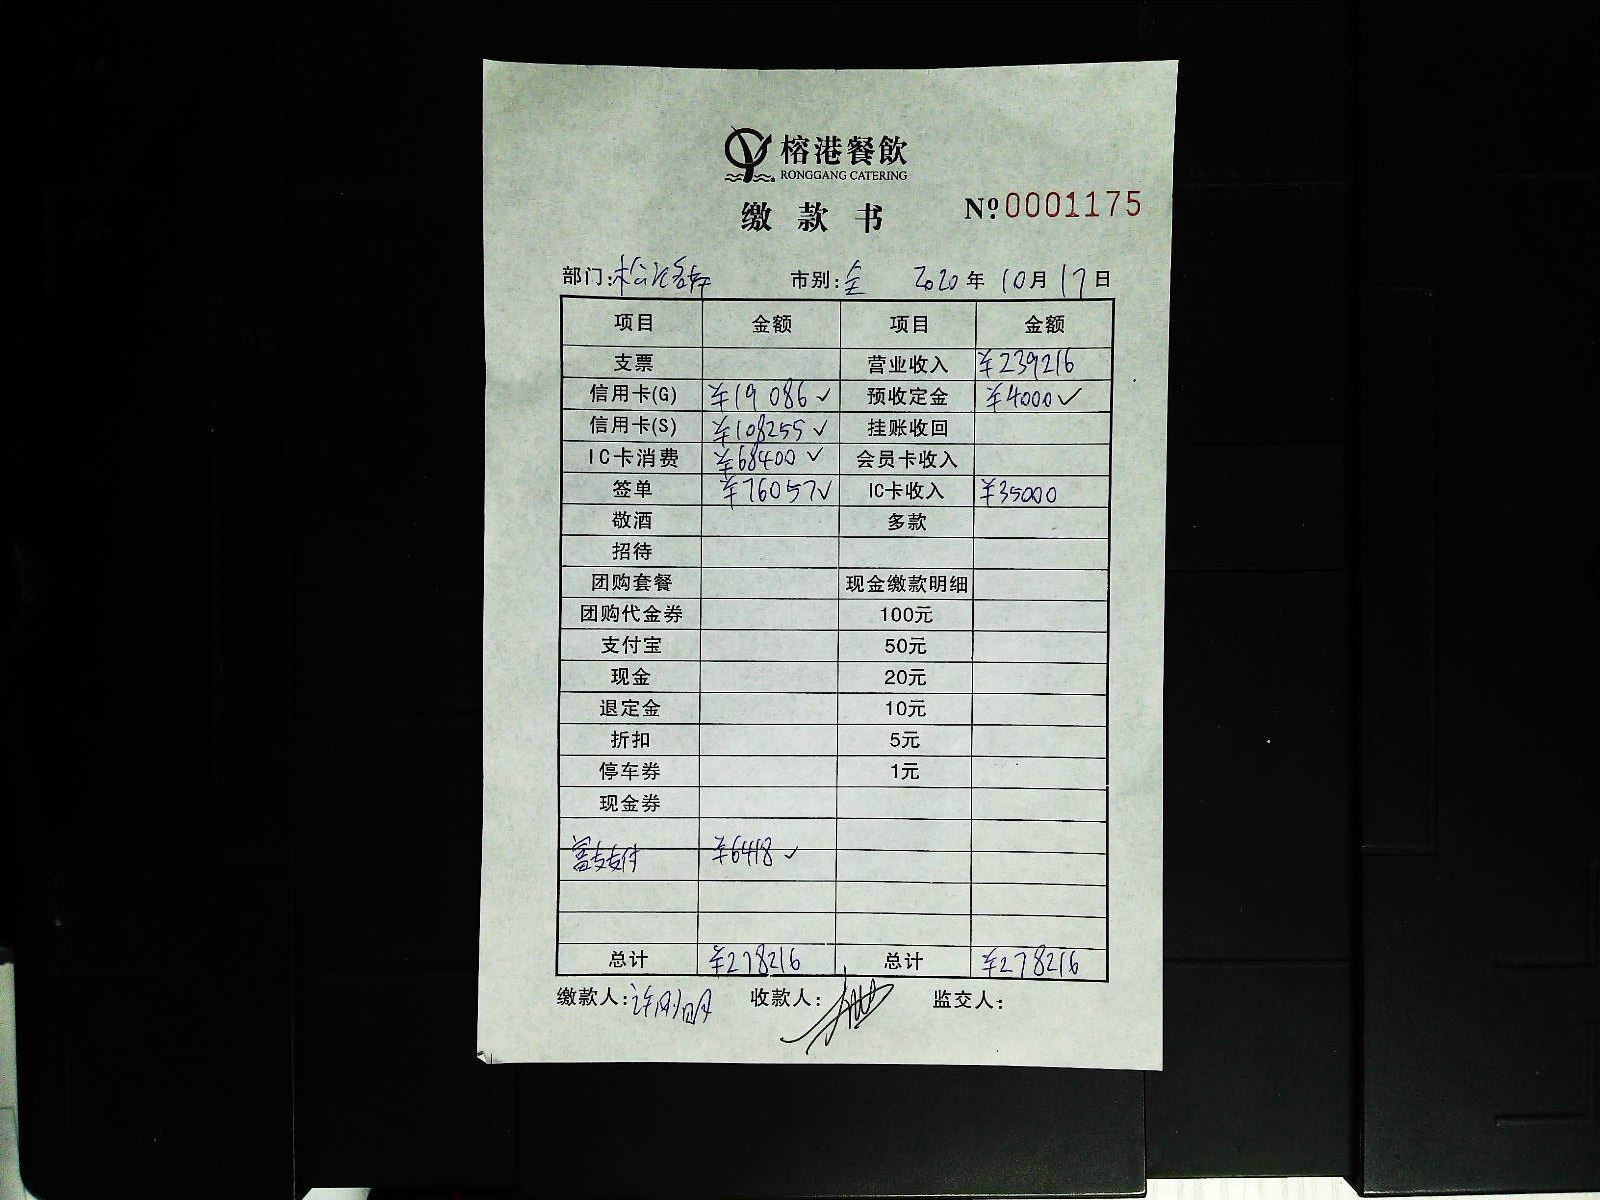 榕港餐飲
RONGGANG CATERING
缴款书 Nº 0001175
部门: 市别:全 2020年10月17日
项目 金额 项目 金额
支票 营业收入 ¥239216
信用卡(G) ¥19086✓ 预收定金 ¥4000✓
信用卡(S) ¥108255✓ 挂账收回
IC卡消费 ¥68400✓ 会员卡收入
签单 ¥76057✓ IC卡收入 ¥35000
敬酒 多款
招待
团购套餐 现金缴款明细
团购代金券 100元
支付宝 50元
现金 20元
退定金 10元
折扣 5元
停车券 1元
现金券
支付 ¥6418✓
总计 ¥278216 总计 ¥278216
缴款人: 收款人: 监交人: